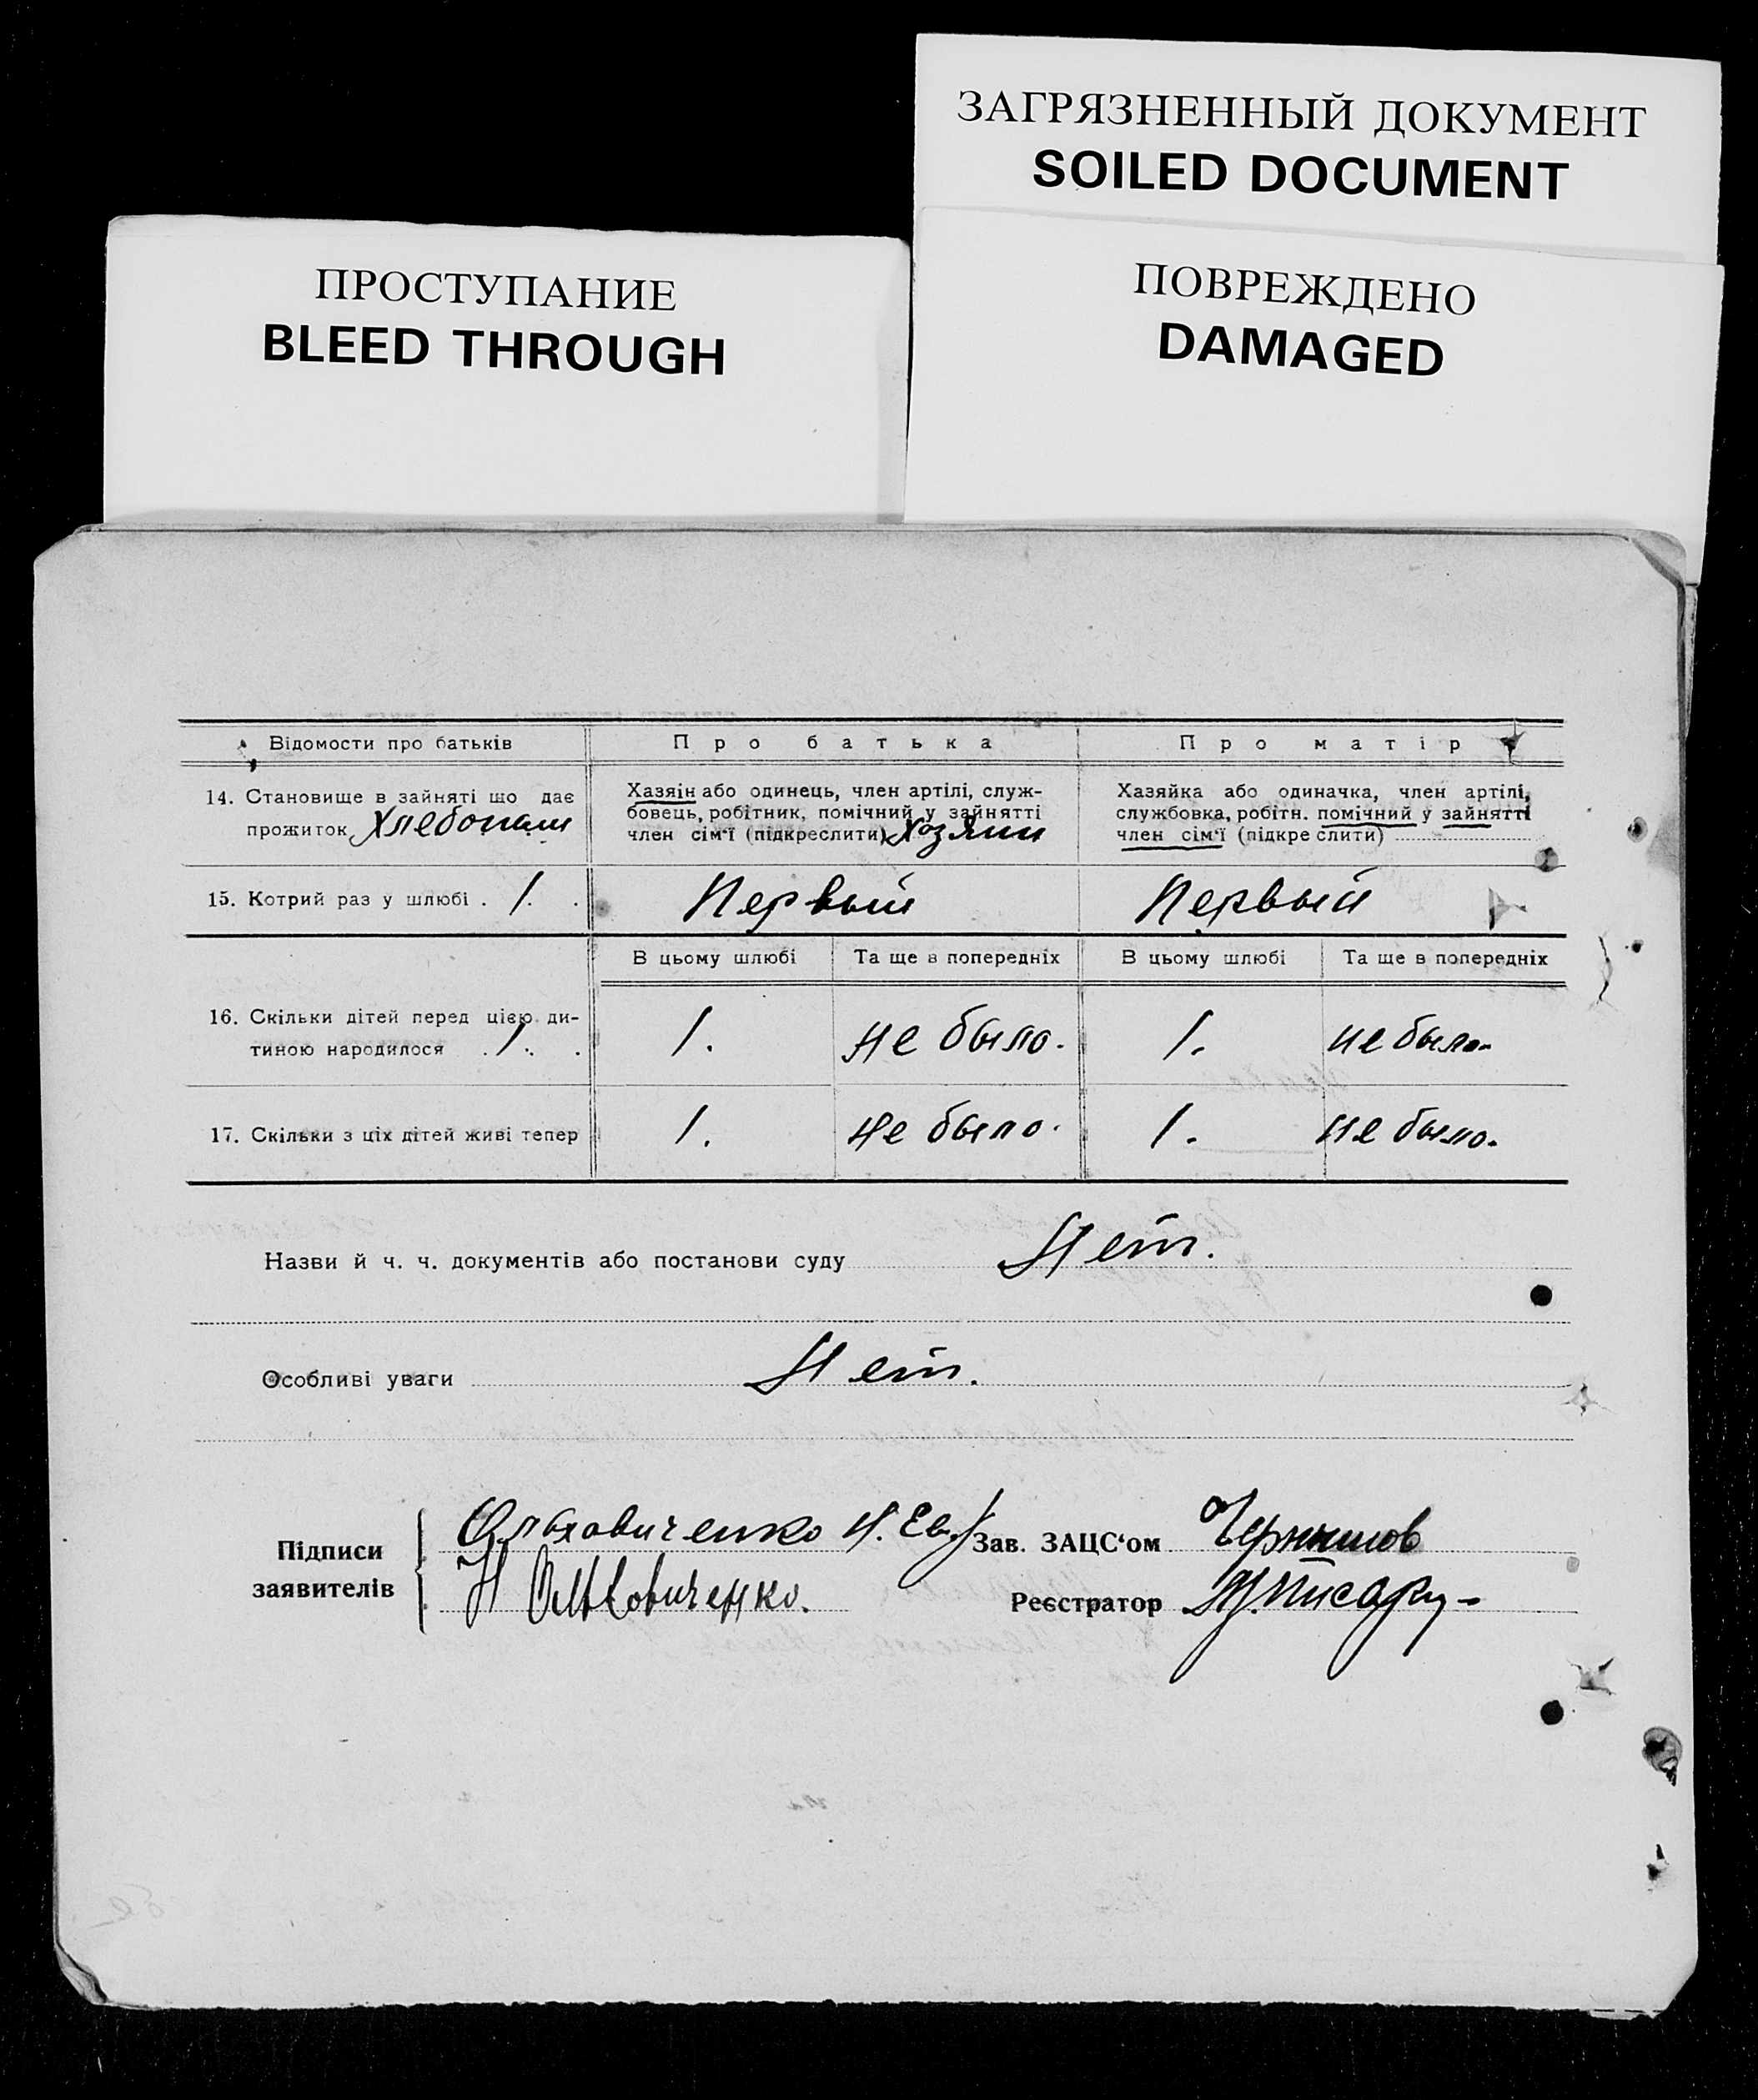 ЗАГРЯЗНЕННЫЙ ДОКУМЕНТ
SOILED DOCUMENT
ПРОСТУПАНИЕ
BLEED THROUGH
ПОВРЕЖДЕНО
DAMAGED
Відомости про батьків
Про батька
Про матір
14. Становище в зайняті що дає
прожиток Хлебопаш
Хазяін або одинець, член артілі, служ-
бовець, робітник, помічний у зайнятті
член сім'ї (підкреслити) Хозяин
Хазяйка або одиначка, член артілі,
службовка, робітн. помічний у зайнятті
член сім'ї (підкре слити)
15. Котрий раз у шлюбі . 1. .
Первый
Первый
В цьому шлюбі
Та ще в попередніх
В цьому шлюбі
Та ще в попередніх
16. Скільки дітей перед цією ди-
тиною народилося . 1. .
1.
не было.
1.
не было.
17. Скільки з ціх дітей живі тепер
1.
не было.
1.
не было.
Назви й ч. ч. документів або постанови суду Нет.
Особливі уваги Нет.
Підписи
заявителів
Ольховиченко Н. Ев.
Н Ольховиченко.
Зав. ЗАЦС‘ом
Реєстратор